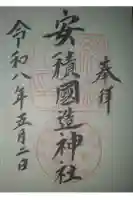 奉拝
安積國造神社
令和八年五月二日